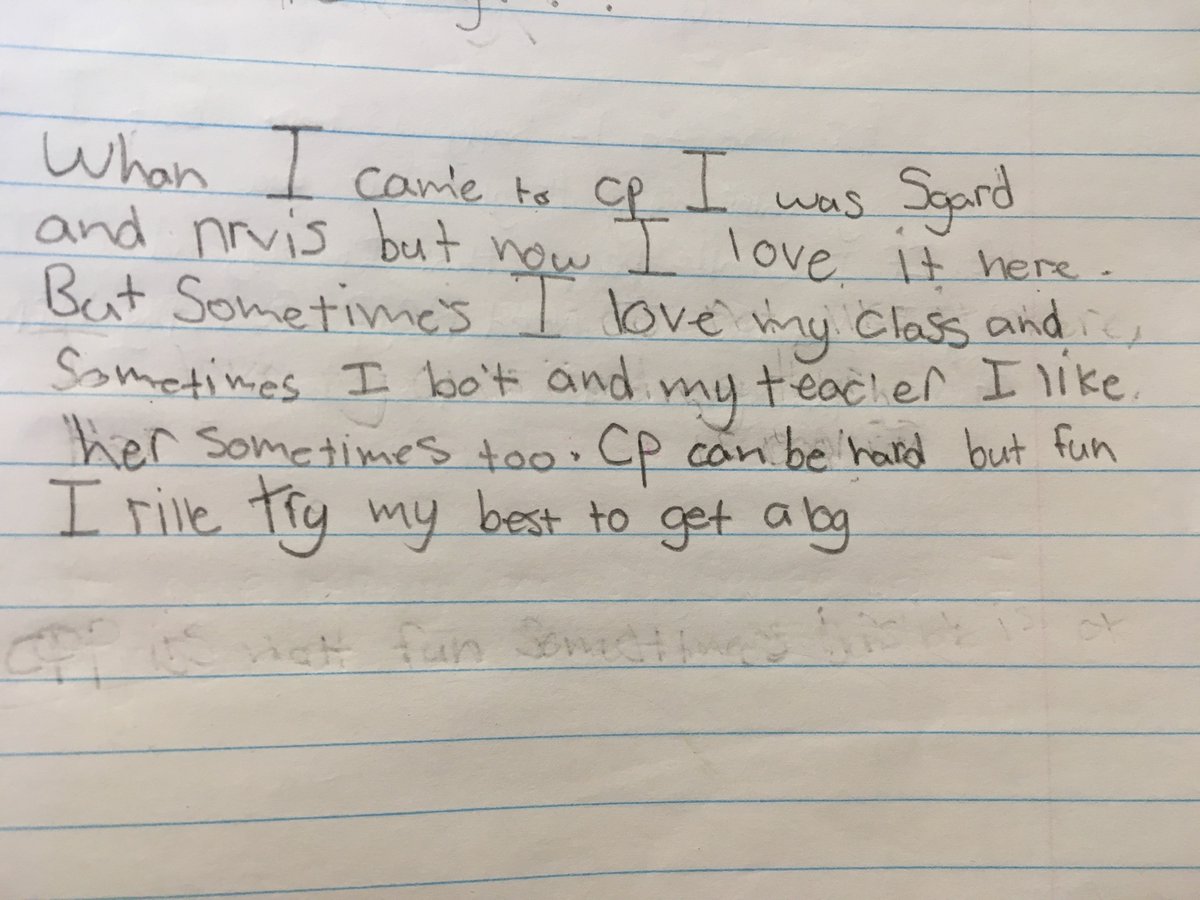 Whan I came to cp I was Sgard
and nrvis but now I love it here.
But Sometimes I love my class and
Sometimes I bo't and my teacher I like
her sometimes too. Cp can be hard but fun
I rille try my best to get a bg
not fun Sometimes